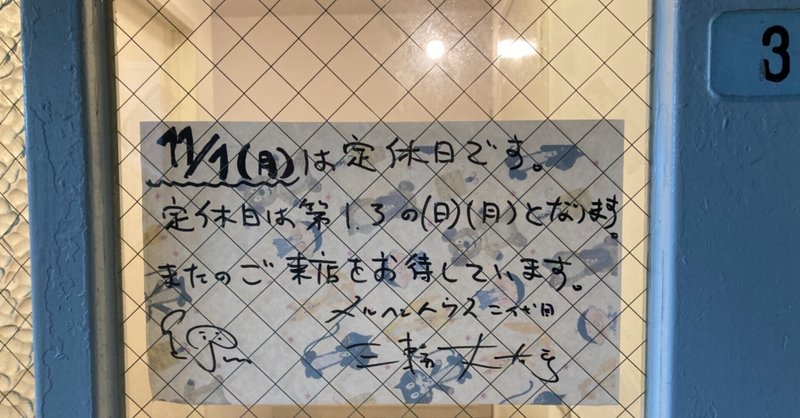 3
11/1(月)は定休日です。
定休日は第1.3の(日)(月)となります。
またのご来店をお待しています。
メルヘンハウス二代目
三輪丈太郎